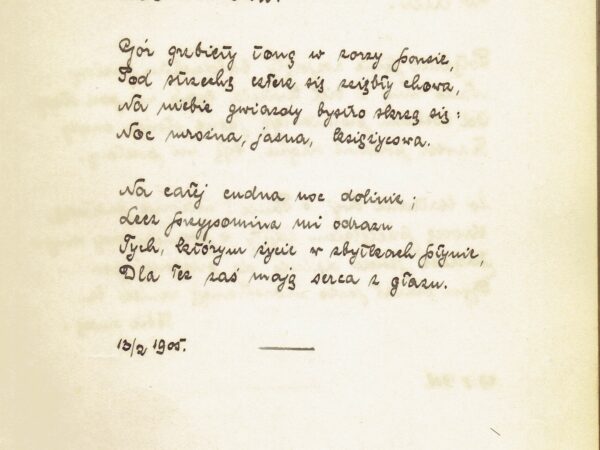 Gór grzbiety toną w zorzy ponsie,
Pod strzechą człek się zziębły chowa,
Na niebie gwiazdy bystro skrzą się:
Noc mroźna, jasna, księżycowa.
Na całej cudna noc dolinie;
Lecz przypomina mi odrazu
Tych, którym życie w zbytkach płynie,
Dla łez zaś mają serca z głazu.
13/2 1905.